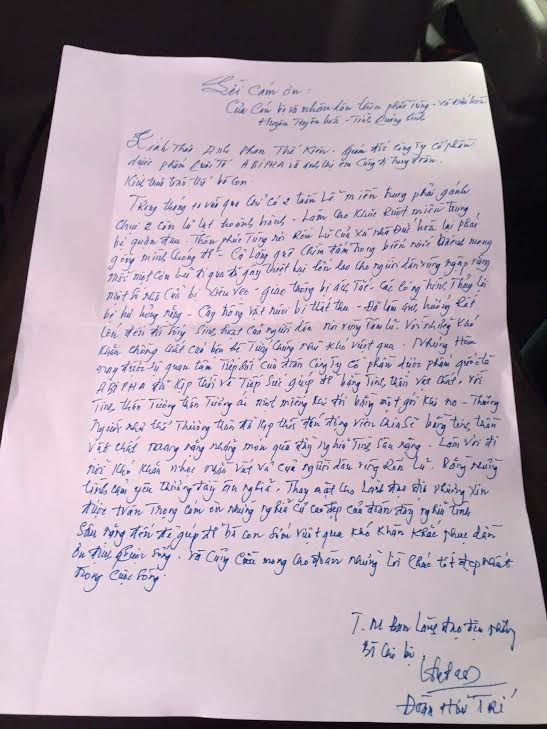 Lời Cám ơn:
Của Cán bộ và nhân dân thôn phúc Tùng - xã Đức hóa
Huyện Tuyên hóa - Tỉnh Quảng Bình
Kính Thưa: Anh Phan Thế Kiên. Giám đốc Công ty Cổ phần
dược phẩm Quốc Tế ABIPHA và anh chị em Công ty trong đoàn.
Kính thưa toàn thể bà con
Trong tháng vừa qua Chỉ có 2 tuần Lễ miền trung phải gánh
Chịu 2 cơn lũ lụt hoành hành - Làm cho Khúc Ruột miền Trung
bị quặn đau. Thôn phúc Tùng nơi Rốn Lũ Của xã nhà Đức hóa lại phải
gồng mình chống
mỗi một Cơn Lũ đi qua đã gây thiệt hại lớn lao cho người dân vùng ngập nặng
một số nhà Cửa bị xiêu vẹo - giao thông bị ách tắc -
bị hư hỏng nặng - Cây trồng vật nuôi bị thất thu -
lớn đến đời sống Sinh hoạt của người dân nơi vùng Tâm lũ. Với những khó
khăn chồng chất của bà con Tưởng chừng như khó vượt qua. Nhưng Hôm
nay được sự quan tâm Tiếp sức Của đoàn Công ty Cổ phần dược phẩm quốc tế
ABIPHA đã Kịp thời về Tiếp Sức giúp đỡ bằng Tinh thần vật chất. Với
Tinh thần Tương thân Tương ái một miếng khi đói bằng một gói khi no - Thương
người như thể Thương thân đã Kịp thời đến động viên Chia Sẻ bằng tinh thần
vật chất mang nặng những món quà đầy nghĩa Tình Sâu nặng - Làm vơi đi
nỗi Khó Khăn nhọc nhằn vất vả của người dân vùng Rốn Lũ. Bằng những
tình cảm yêu thương đầy ân nghĩa. Thay mặt cho Lãnh đạo địa phương xin
được trân Trọng cảm ơn những nghĩa cử cao đẹp của đoàn đầy nghĩa tình
Sâu nặng đến để giúp đỡ bà con Sớm vượt qua khó khăn khắc phục dần
ổn định cuộc Sống. Và Cũng Cầu mong Cho đoàn những Lời Chúc tốt đẹp nhất
trong Cuộc Sống.
T.M Ban Lãnh đạo địa phương
Bí thư chi bộ
Đoàn Hữu TRÍ